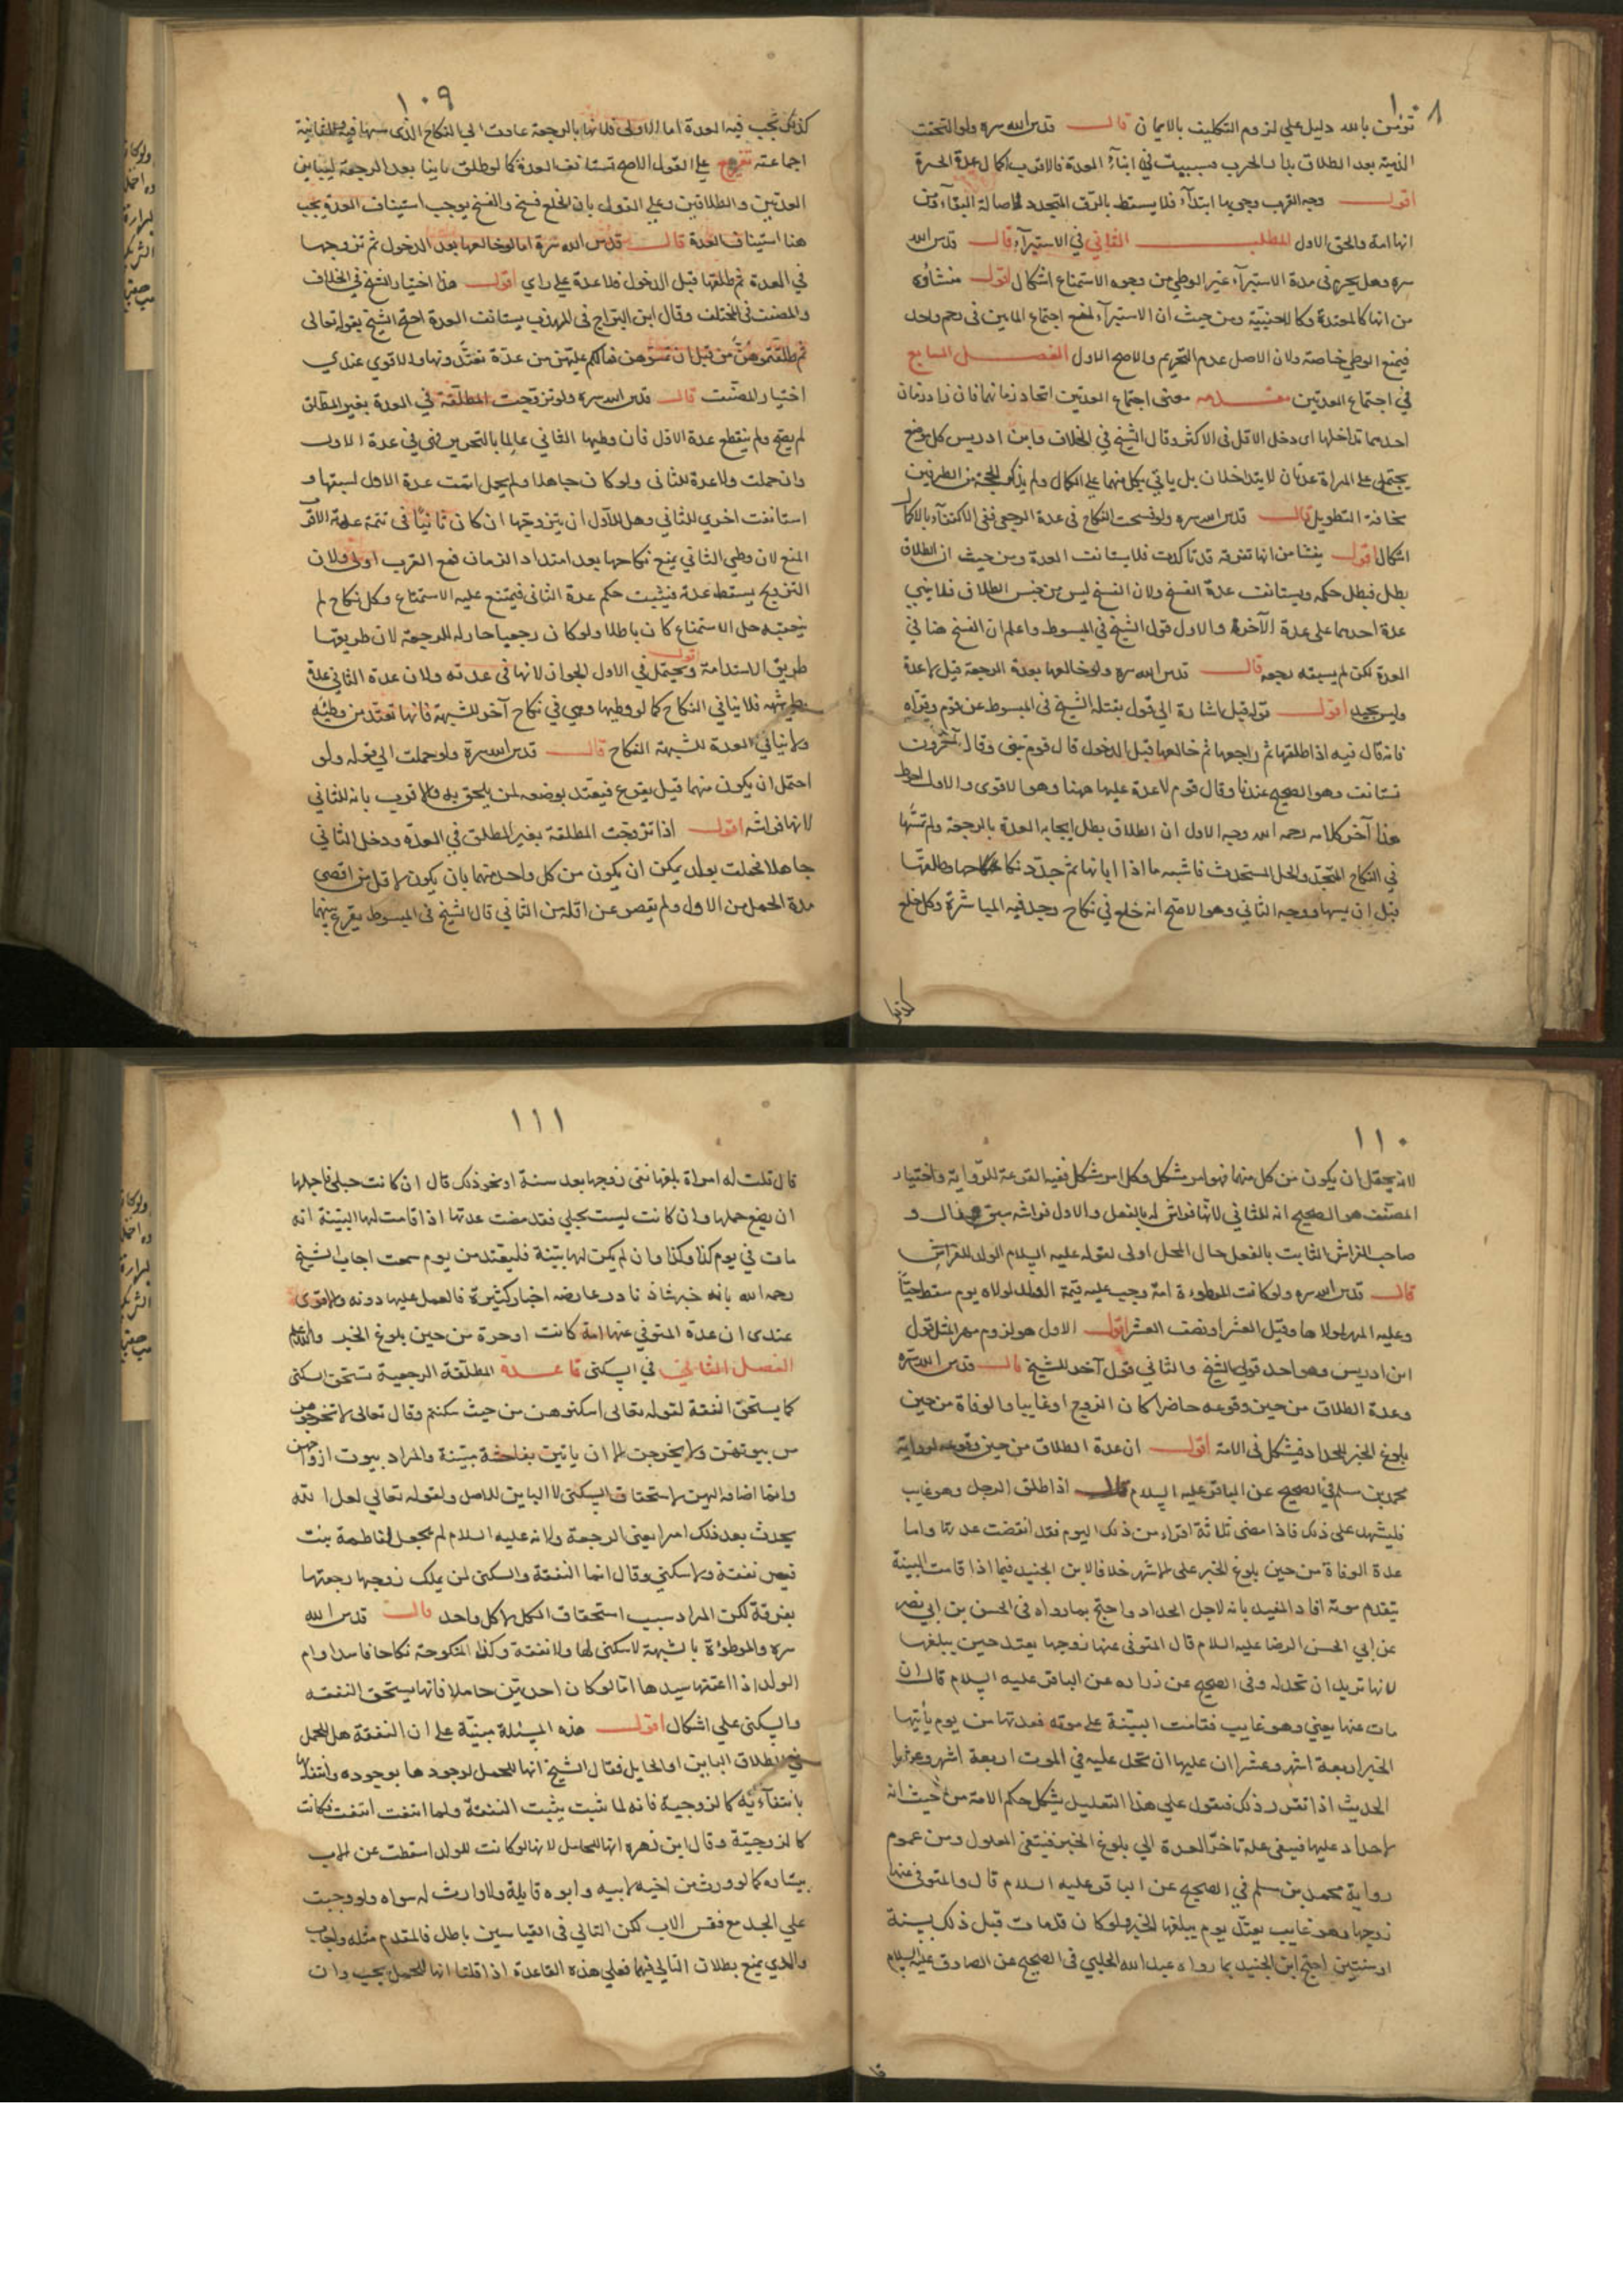 ١٠٨
تؤمن بالله دليل على لزوم التكليف بالايمان قال قدس الله سره ولو التحقت
الذمية بعد الطلاق بدار الحرب فسبيت في اثناء العدة فالاقرب اكمال عدة الحرة
اقول وجه القرب وجوبها ابتداء فلا يسقط بالرق المتجدد لاصالة البقاء ومن
انها امة والحق الاول المطلب الثاني في الاستبراء قال قدس الله
سره وهل يحرم في مدة الاستبراء غير الوطي من وجوه الاستمتاع اشكال اقول منشاؤه
من انها كالمعتدة وكالاجنبية ومن حيث ان الاستبراء لمنع اجتماع المايين في رحم واحد
فيمنع الوطي خاصة ولان الاصل عدم التحريم والاصح الاول الفصل السابع
في اجتماع العدتين مقدمه معنى اجتماع العدتين اتحاد زمانهما فان زاد زمان
احدهما تداخلها اى دخل الاقل في الاكثر وقال الشيخ في الخلاف وابن ادريس كل موضع
يجتمع على المراة عدتان لا يتداخلان بل ياتي بكل منهما على الكمال ولم يذكر الحجة من الطرفين
مخافة التطويل قال قدس الله سره ولو فسخت النكاح في عدة الرجعى ففى الاكتفاء بالاكمال
اشكال اقول ينشا من انها تفرقة قد تاكدت فلا يستانف العدة ومن حيث ان الطلاق
بطل فبطل حكمه ويستانف عدة الفسخ ولان الفسخ ليس من جنس الطلاق فلا يبنى
عدة احدهما على عدة الآخرة والاول قول الشيخ في المبسوط واعلم ان الفسخ هنا في
العدة لكن لم يسبقه رجعه قال قدس الله سره ولو خالعها بعد الرجعة قيل لا عدة
وليس بجيد اقول قوله قيل اشارة الى قول نقله الشيخ في المبسوط عن قوم وقواه
فانه قال فيه اذا طلقها ثم راجعها ثم خالعها قبل الدخول قال قوم تبنى وقال آخرون
تستانف وهو الصحيح عندنا وقال قوم لا عدة عليها هيهنا وهو الاقوى والاول احوط
هذا آخر كلامه رحمه الله وجه الاول ان الطلاق بطل ايجابه العدة بالرجعة ولم تمسها
في النكاح المتجدد والحل المستحدث فاشبه ما اذا ابانها ثم جدد نكاحها وطلقها
قبل ان يمسها ووجه الثاني وهو الاصح انه خلع في نكاح وجد فيه المباشرة وكل خلع
كذلك
١٠٩
كذلك تجب فيه العدة اما الاولى فلانها بالرجعة عادت الى النكاح الذى مسها فيه والثانية
اجماعية تفريع على القول الاصح تستانف العدة كما لو طلق باينا بعد الرجعة لتباين
العدتين والطلاقين وعلى القول بان الخلع فسخ والفسخ يوجب استيناف العدة يجب
هنا استيناف العدة قال قدس الله سره اما لو خالعها بعد الدخول ثم تزوجها
في العدة ثم طلقها قبل الدخول فلا عدة على راي اقول هذا اختيار الشيخ في الخلاف
والمصنف في المختلف وقال ابن البراج في المهذب يستانف العدة احتج الشيخ بقوله تعالى
ثم طلقتموهن من قبل ان تمسوهن فما لكم عليهن من عدة تعتدونها والاقوي عندي
اختيار المصنف قال قدس الله سره ولو تزوجت المطلقة في العدة بغير المطلق
لم يصح ولم ينقطع عدة الاول فان وطيها الثاني عالما بالتحريم فهى في عدة الاول
وان حملت ولا عدة للثاني ولو كان جاهلا ولم يحمل اتمت عدة الاول لسبقها و
استانفت اخرى للثاني وهل للاول ان يتزوجها ان كان في تتمة عدته الاقرب
المنع لان وطي الثاني يمنع نكاحها بعد امتداد الزمان فمع القرب اولى ولان
التزويج يسقط عدته فيثبت حكم عدة الثاني فيمتنع عليه الاستمتاع وكل نكاح لم
يتعقبه حل الاستمتاع كان باطلا ولو كان رجعيا جاز له الرجعة لان طريقها
طريق الاستدامة اقول ويحتمل في الاول الجواز لانها في عدته ولان عدة الثاني عدة
وطي شبهه فلا ينافي النكاح كما لو وطيها وهي في نكاح آخر للشبهة فانها تعتد من وطيه
ولا ينافي العدة للشبهة النكاح قال قدس الله سره ولو حملت الى قوله ولو
احتمل ان يكون منهما قيل يقرع فيعتد بوضعه لمن يلحق به والاقرب بانه للثاني
لانها فراشه اقول اذا تزوجت المطلقة بغير المطلق في العدة ودخل الثاني
جاهلا فحملت بولد يمكن ان يكون من كل واحد منهما بان يكون لاقل من اقصى
مدة الحمل من الاول ولم يقصر عن اقله من الثاني قال الشيخ في المبسوط يقرع بينهما
١١٠
لانه يحتمل ان يكون من كل منهما فهو امر مشكل وكل امر مشكل ففيه القرعة للرواية واختيار
المصنف هو الصحيح انه للثاني لانها فراش له بالفعل والاول فراشه سبق وزال و
صاحب الفراش الثابت بالفعل حال الحمل اولى لقوله عليه السلام الولد للفراش
قال قدس الله سره ولو كانت الموطوءة امة وجب عليه قيمة الولد لمولاه يوم سقط حيا
وعليه المهر لمولاها وقيل العشر او نصف العشر اقول الاول هو لزوم مهر المثل قول
ابن ادريس وهو احد قولى الشيخ والثاني قول آخر للشيخ قال قدس الله سره
وعدة الطلاق من حين وقوعه حاضرا كان الزوج او غايبا والوفاة من حين
بلوغ الخبر للحداد فيشكل في الامة اقول ان عدة الطلاق من حين وقوعه لرواية
محمد بن مسلم في الصحيح عن الباقر عليه السلام قال اذا طلق الرجل وهو غايب
فليشهد على ذلك فاذا مضى ثلاثة اقراء من ذلك اليوم فقد انقضت عدتها واما
عدة الوفاة من حين بلوغ الخبر على الاشهر خلافا لابن الجنيد فيما اذا قامت البينة
بتقدم موته افاد المفيد بانه لاجل الحداد واحتج بما رواه في الحسن بن ابي نصر
عن ابي الحسن الرضا عليه السلام قال المتوفى عنها زوجها يعتد حين يبلغها
لانها تريد ان تحد له وفي الصحيح عن زراره عن الباقر عليه السلام قال ان
مات عنها يعني وهو غايب فقامت البينة على موته فعدتها من يوم يأتيها
الخبر اربعة اشهر وعشرا ان عليها ان تحد عليه في الموت اربعة اشهر وعشرا
الحديث اذا تقرر ذلك فنقول على هذا التعليل يشكل حكم الامة من حيث انه
لا حداد عليها فينتفى علة تاخر العدة الي بلوغ الخبر فينتفى المعلول ومن عموم
رواية محمد بن مسلم في الصحيح عن الباقر عليه السلام قال والمتوفى عنها
زوجها وهو غايب يعتد يوم يبلغها الخبر ولو كان قد مات قبل ذلك بسنة
او سنتين احتج ابن الجنيد بما رواه عبد الله الحلبي في الصحيح عن الصادق عليه السلام
قا
١١١
قال قلت له امراة بلغها نعى زوجها بعد سنة او نحو ذلك قال ان كانت حبلى فاجلها
ان يضع حملها وان كانت ليست بحبلى فقد مضت عدتها اذا قامت لها البينة انه
مات في يوم كذا وكذا وان لم يكن لها بينة فليعتد من يوم سمعت اجاب الشيخ
رحمه الله بانه خبر شاذ نادر عارضه اخبار كثيرة فالعمل عليها دونه والاقوى
عندى ان عدة المتوفي عنها امة كانت او حرة من حين بلوغ الخبر والله اعلم
الفصل الثامن في السكنى قاعدة المطلقة الرجعية تستحق السكنى
كما يستحق النفقة لقوله تعالى اسكنوهن من حيث سكنتم وقال تعالى لا تخرجوهن
من بيوتهن ولا يخرجن الا ان ياتين بفاحشة مبينة والمراد بيوت ازواجهن
وانما اضافه اليهن لاستحقاق السكنى لا الباين للاصل ولقوله تعالى لعل الله
يحدث بعد ذلك امرا يعني الرجعة ولانه عليه السلام لم يجعل لفاطمة بنت
قيس نفقة ولا سكنى وقال انما النفقة والسكنى لمن يملك زوجها رجعتها
بفرقة لكن المراد سبب استحقاق الكل لا كل واحد قال قدس الله
سره والموطوءة بالشبهة لا سكنى لها ولا نفقة وكذا المنكوحة نكاحا فاسدا وام
الولد اذا اعتقها سيدها اما لو كان احديهن حاملا فانها يستحق النفقه
والسكنى على اشكال اقول هذه المسئلة مبنية على ان النفقة هل للحمل
في الطلاق الباين او الحايل فقال الشيخ انها للحمل لوجودها بوجوده وانتفائها
بانتفائه كالزوجية فانه لما ثبت يثبت النفقة ولما انتفت انتفت فكانت
كالزوجية وقال ابن زهره انها للحامل لانها لو كانت للولد اسقطت عن الاب
بيساره كما لو ورث من اخيه لابيه وابوه قاتله ولا وارث له سواه ولو وجبت
على الجد مع فقر الاب لكن التالي في القياسين باطل فالمقدم مثله واجاب
والدي بمنع بطلان التالي فيهما فعلى هذه القاعدة اذا قلنا انها للحمل يجب وان